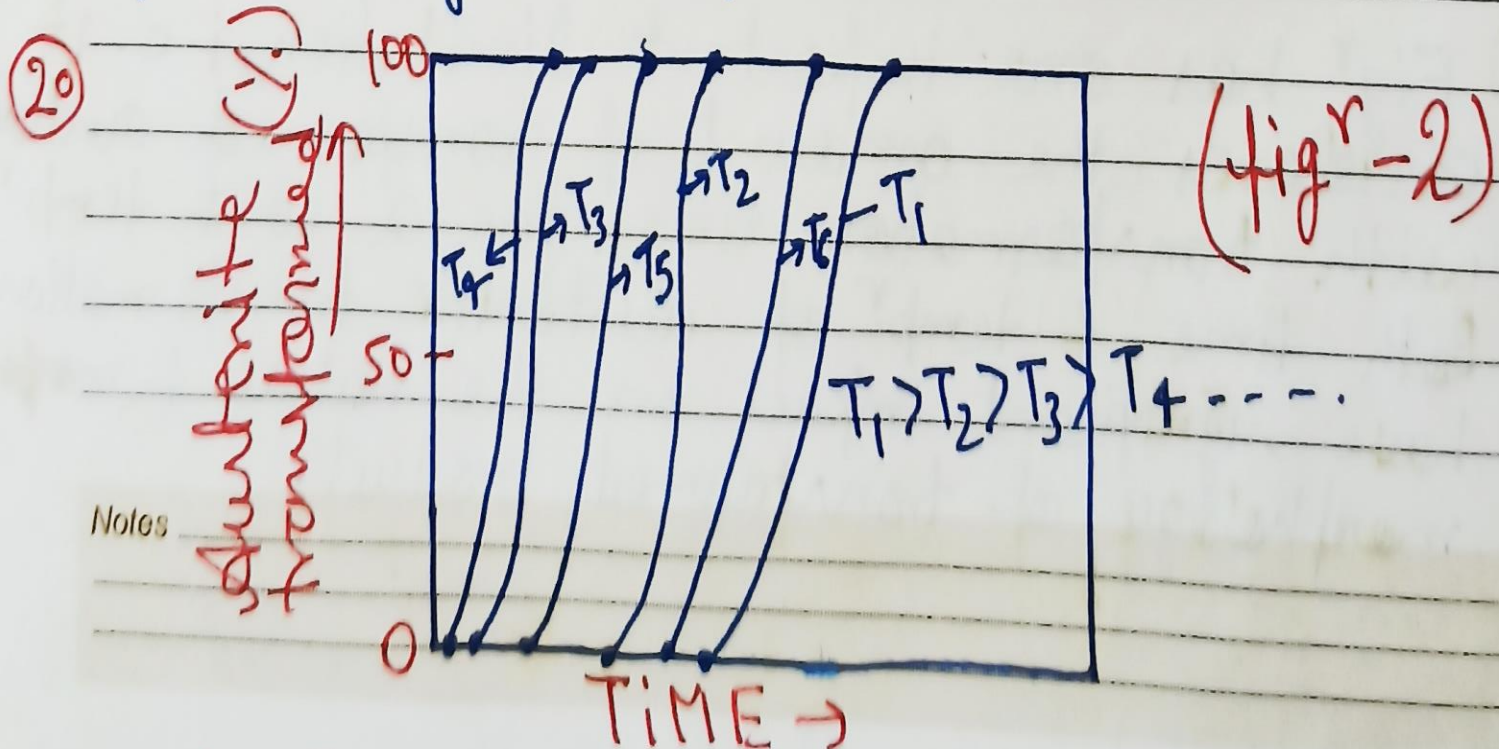 20
Austenite
transformed
(%)
100
50
0
T4
T3
T5
T2
T6
T1
T1 > T2 > T3 > T4 - - - - .
(figr - 2)
Notes
TiME →